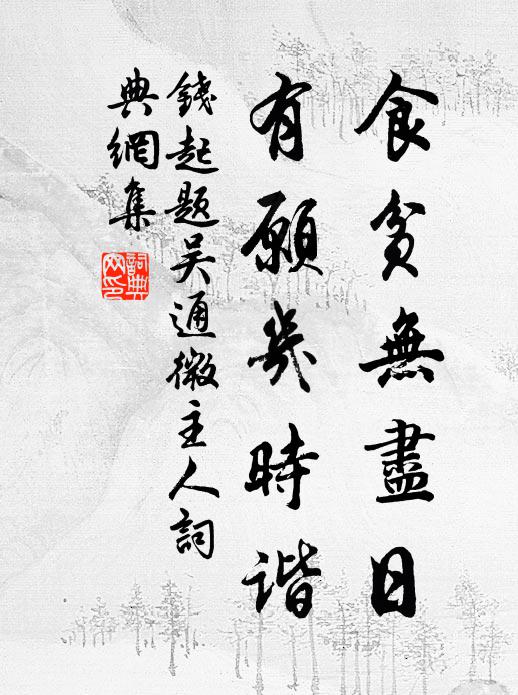 食貧無盡日
有願幾時谐
錢起題吴通微主人詞
典網集
詞典
网印